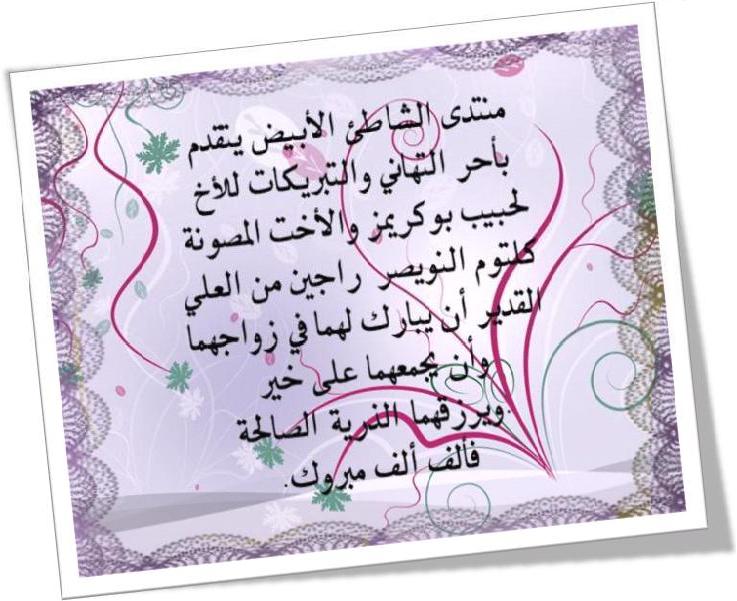 منتدى الشاطئ الأبيض يتقدم
بأحر التهاني والتبريكات للأخ
لحبيب بوكريمز والأخت المصونة
كلثوم النويصر راجين من العلي
القدير أن يبارك لهما في زواجهما
وأن يجمعهما على خير
ويرزقهما الذرية الصالحة
فألف ألف مبروك.